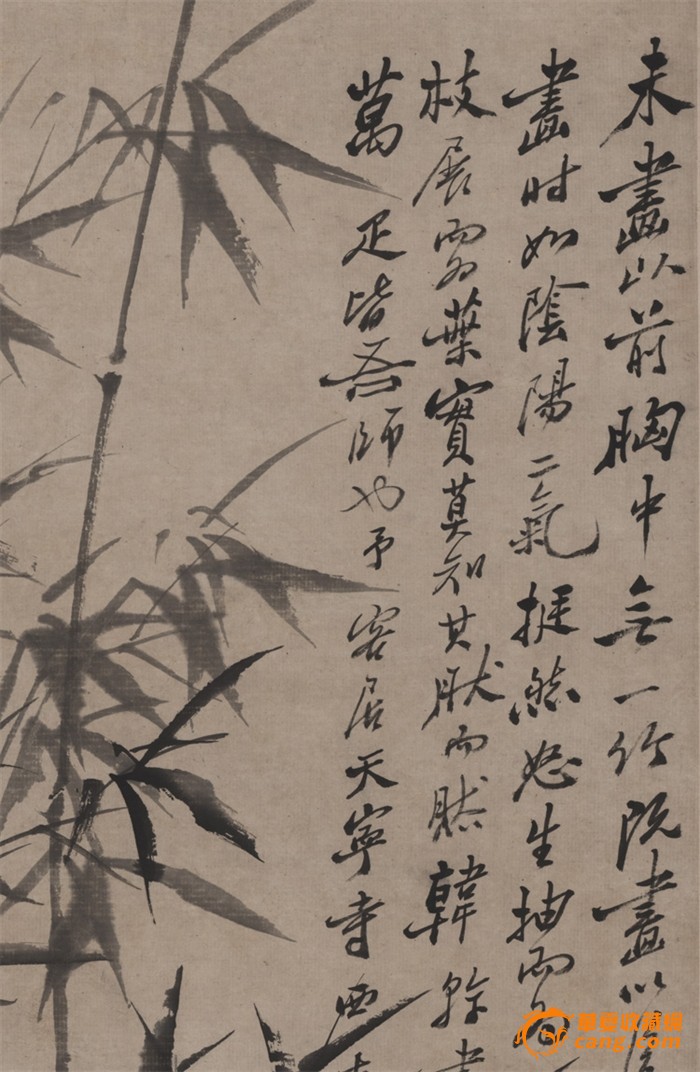 未畫以前胸中無一竹既畫以
畫時如陰陽二氣挺然怒生抽而為
枝展而為葉實莫知其肰而然韓幹畫
萬疋皆吾師也予客居天寧寺西
華夏收藏網
cang.com